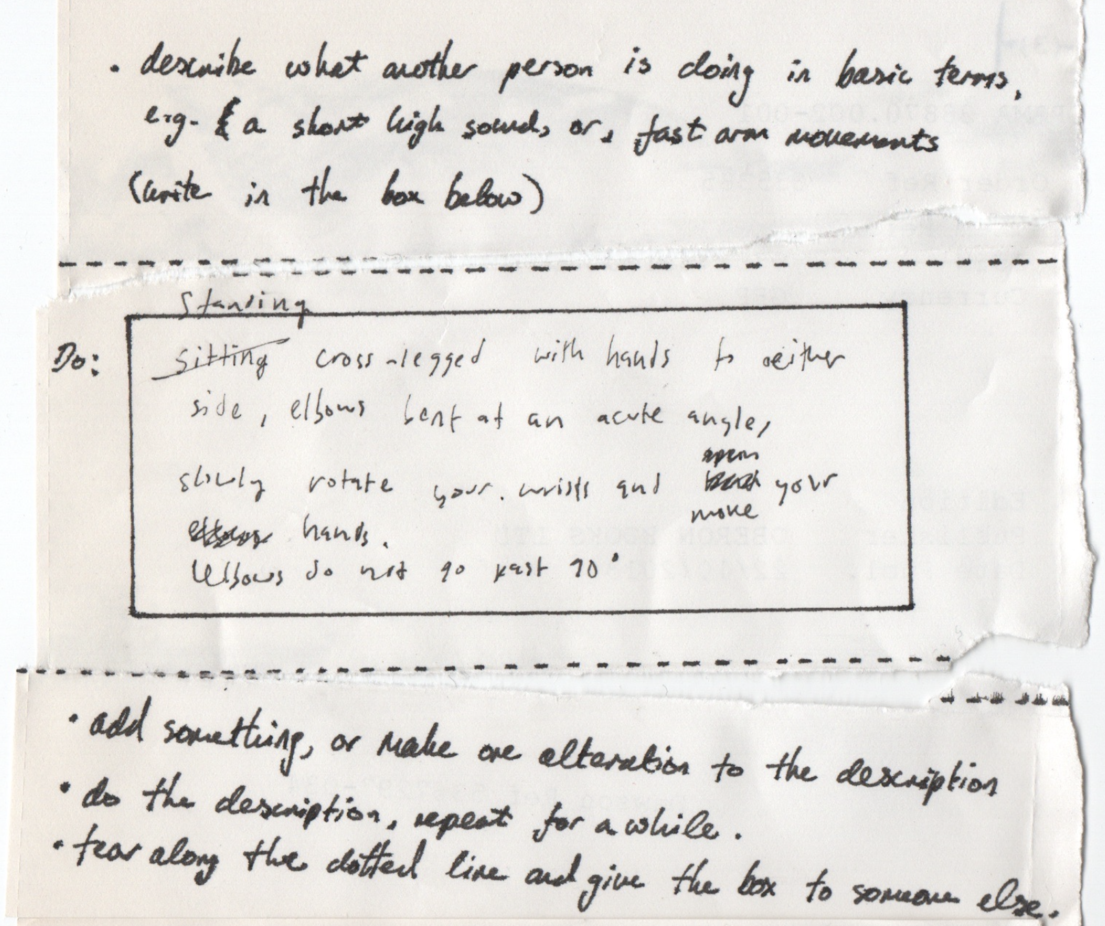 · describe what another person is doing in basic terms,
e.g. a short high sound, or, fast arm movements
(write in the box below)
Standing
Do:
Sitting cross-legged with hands to either
side, elbows bent at an acute angle,
open
slowly rotate your wrists and your
move
hands.
Elbows do not go past 90°
· add something, or make one alteration to the description
· do the description, repeat for a while.
· tear along the dotted line and give the box to someone else.